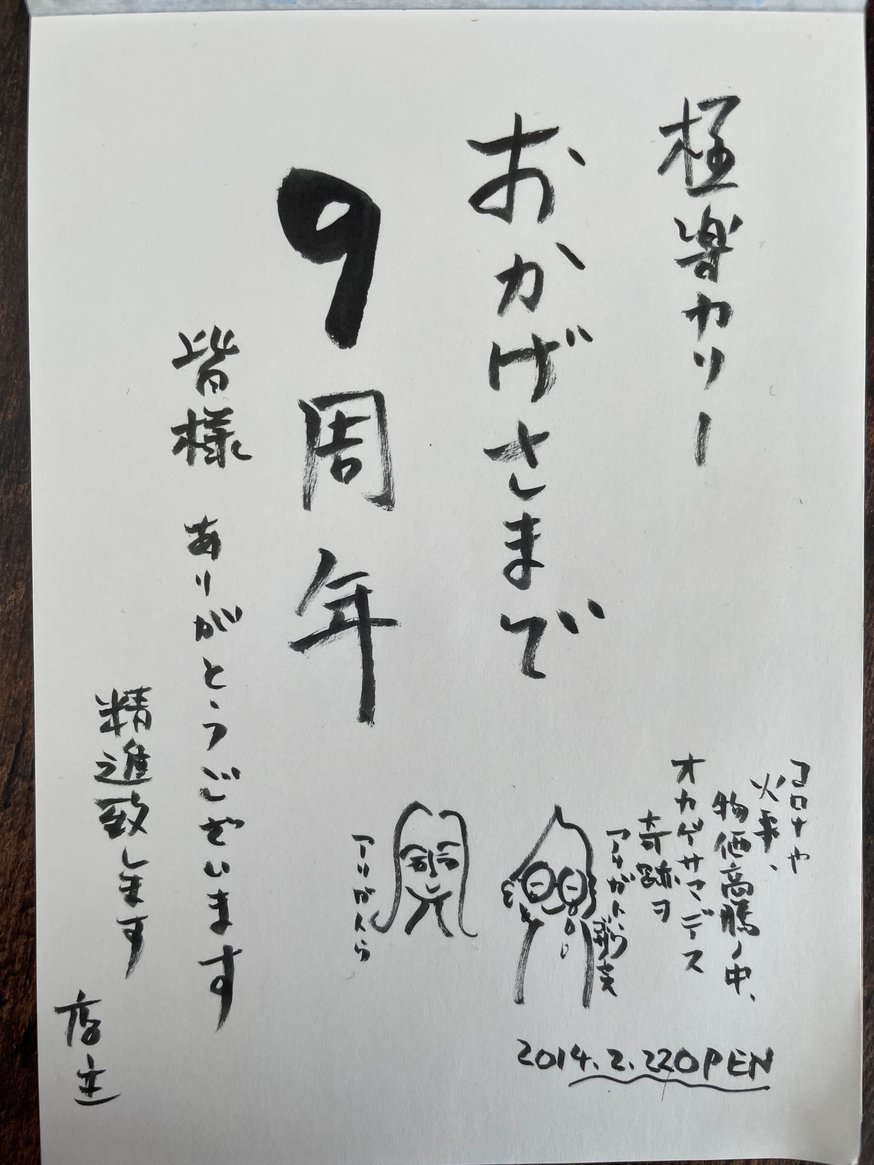 極楽カリー
おかげさまで
9周年
皆様 ありがとうございます
精進致します
店主
コロナや
火事、
物価高騰ノ中、
オカゲサマデス
奇跡ヲ
アリガトウ
アリガトウ
2014.2.22OPEN